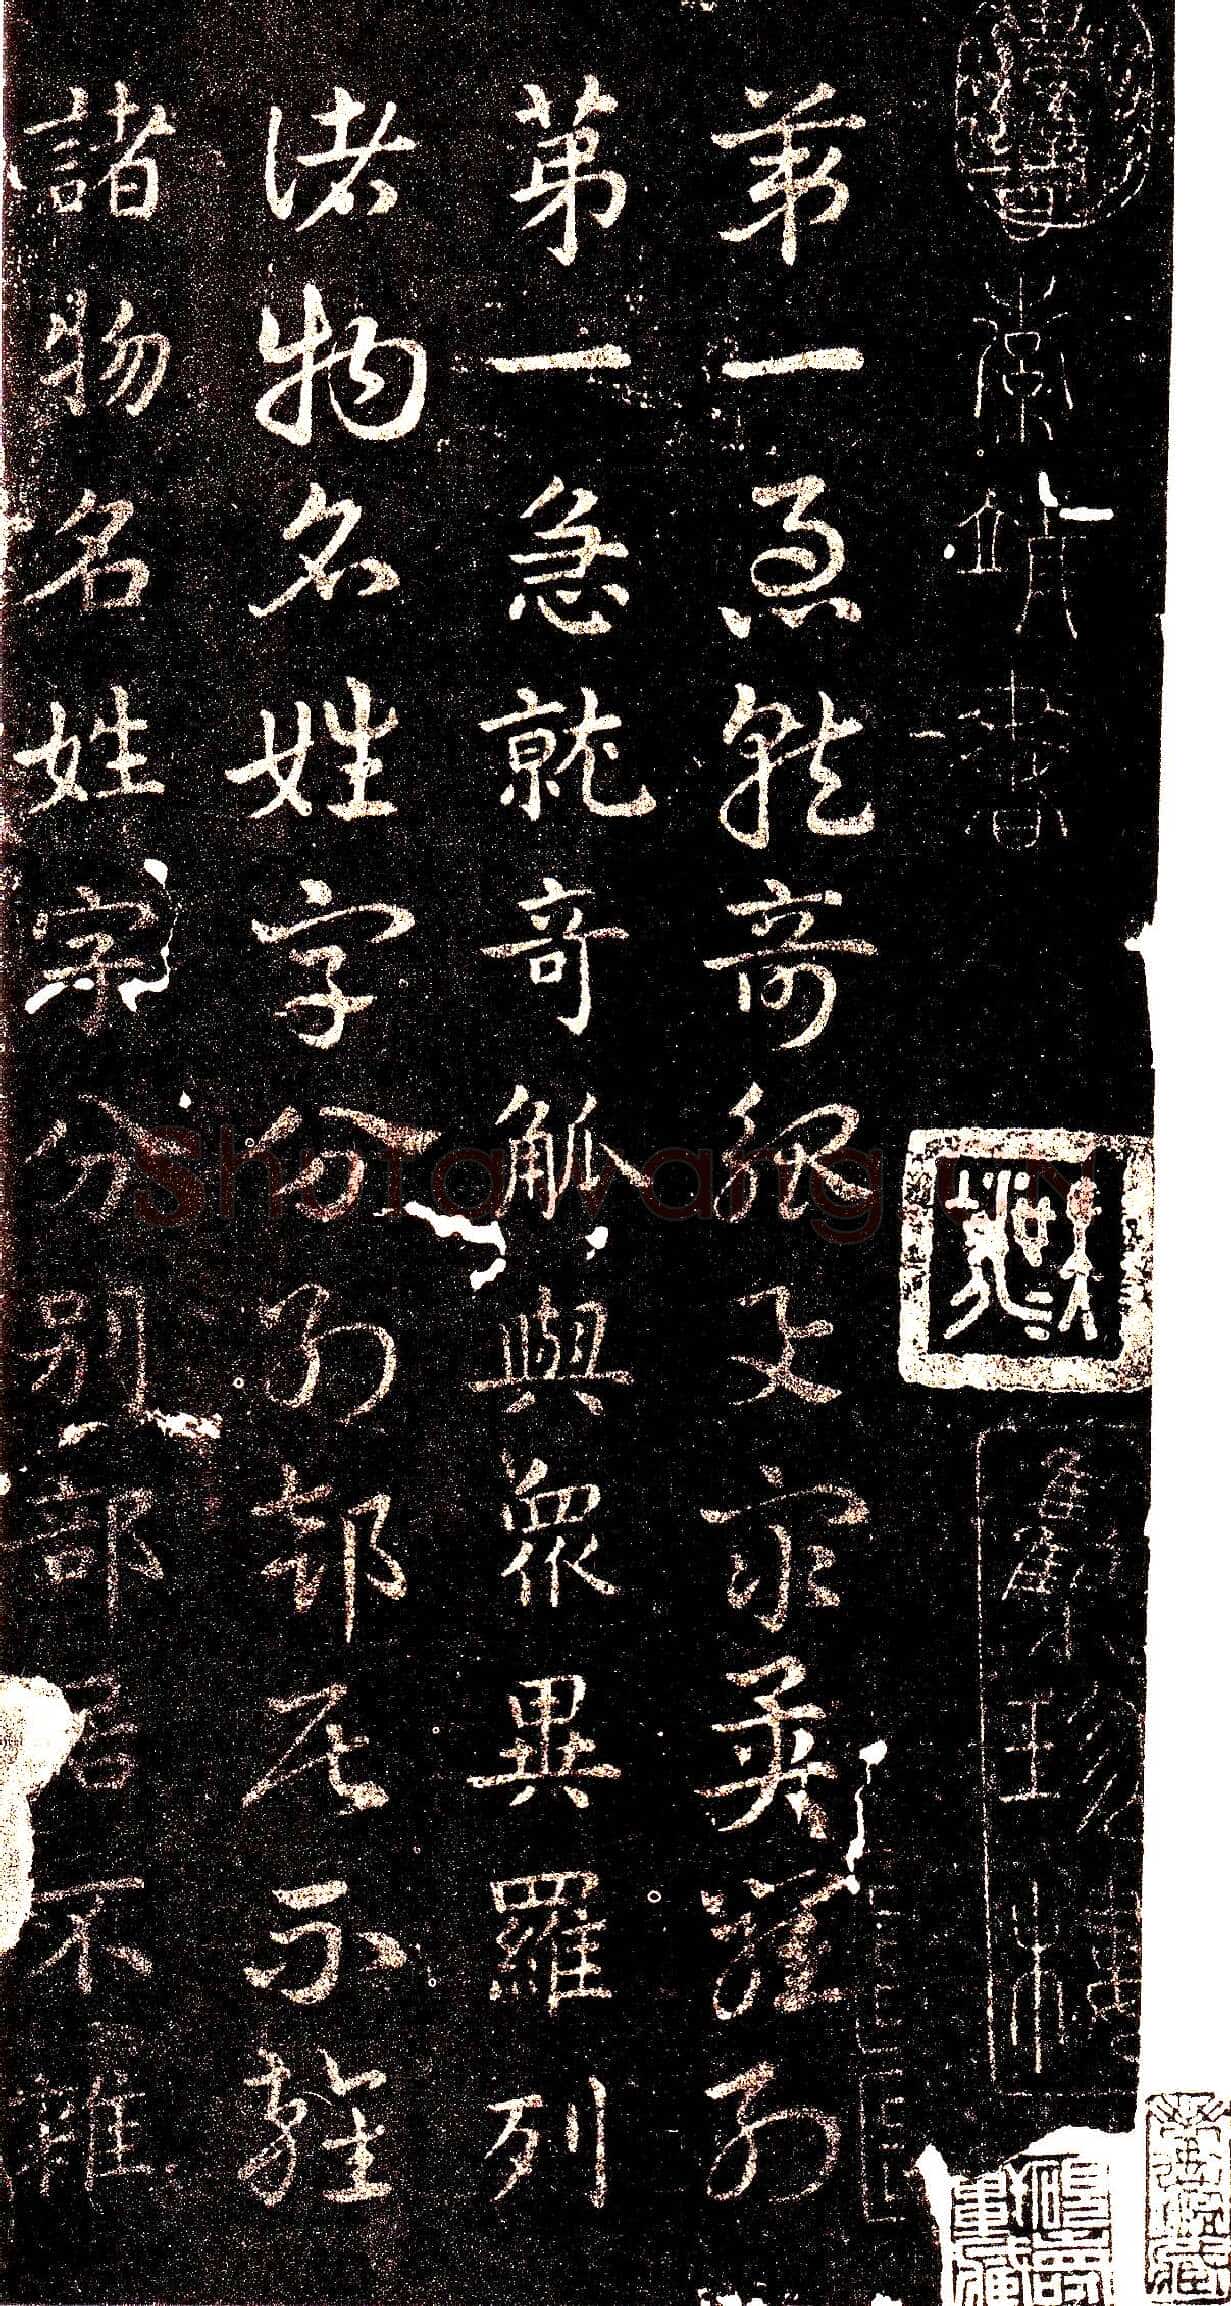 索靖書
第一急就奇觚與眾異羅列
第一急就奇觚與眾異羅列
諸物名姓字分別部居不雜
諸物名姓字分別部居不雜
Shufawang CN